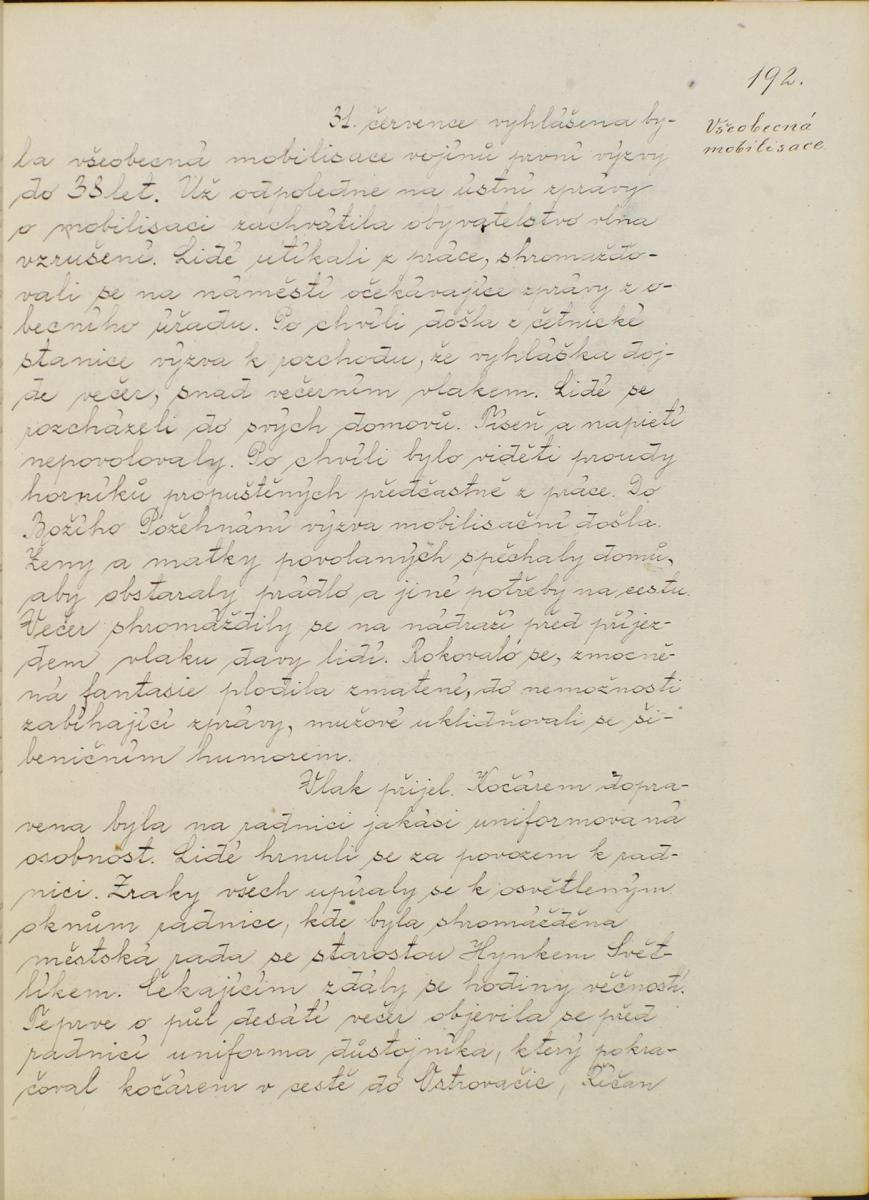 192.
Všeobecná
mobilisace
31. července vyhlášena by-
la všeobecná mobilisace vojínů první výzvy
do 38 let. Už odpoledne na ústní zprávy
o mobilisaci zachvátila obyvatelstvo vlna
vzrušení. Lidé utíkali z práce, shromažďo-
vali se na náměstí očekávajíce zprávy z o-
becního úřadu. Po chvíli došla z četnické
stanice výzva k rozchodu, že vyhláška doj-
de večer, snad večerním vlakem. Lidé se
rozcházeli do svých domovů. Tíseň a napietí
nepovolovaly. Po chvíli bylo viděti proudy
horníků propuštěných předčastně z práce. Do
Božího Požehnání výzva mobilisační došla.
Ženy a matky povolaných spěchaly domů,
aby obstaraly prádlo a jiné potřeby na cestu.
Večer shromáždily se na nádraží před příjez-
dem vlaku davy lidí. Rokovalo se, zmocně-
ná fantasie plodila zmatené, do nemožnosti
zabíhající zprávy, mužové uklidňovali se ši-
beničním humorem.
Vlak přijel. Kočárem dopra-
vena byla na radnici jakási uniformovaná
osobnost. Lidé hrnuli se za povozem k rad-
nici. Zraky všech upíraly se k osvětleným
oknům radnice, kde byla shromážděna
městská rada se starostou Hynkem Svět-
líkem. Čekajícím zdály se hodiny věčností.
Teprve o půl desáté večer objevila se před
radnicí uniforma důstojníka, který pokra-
čoval kočárem v cestě do Ostrovačic, Říčan